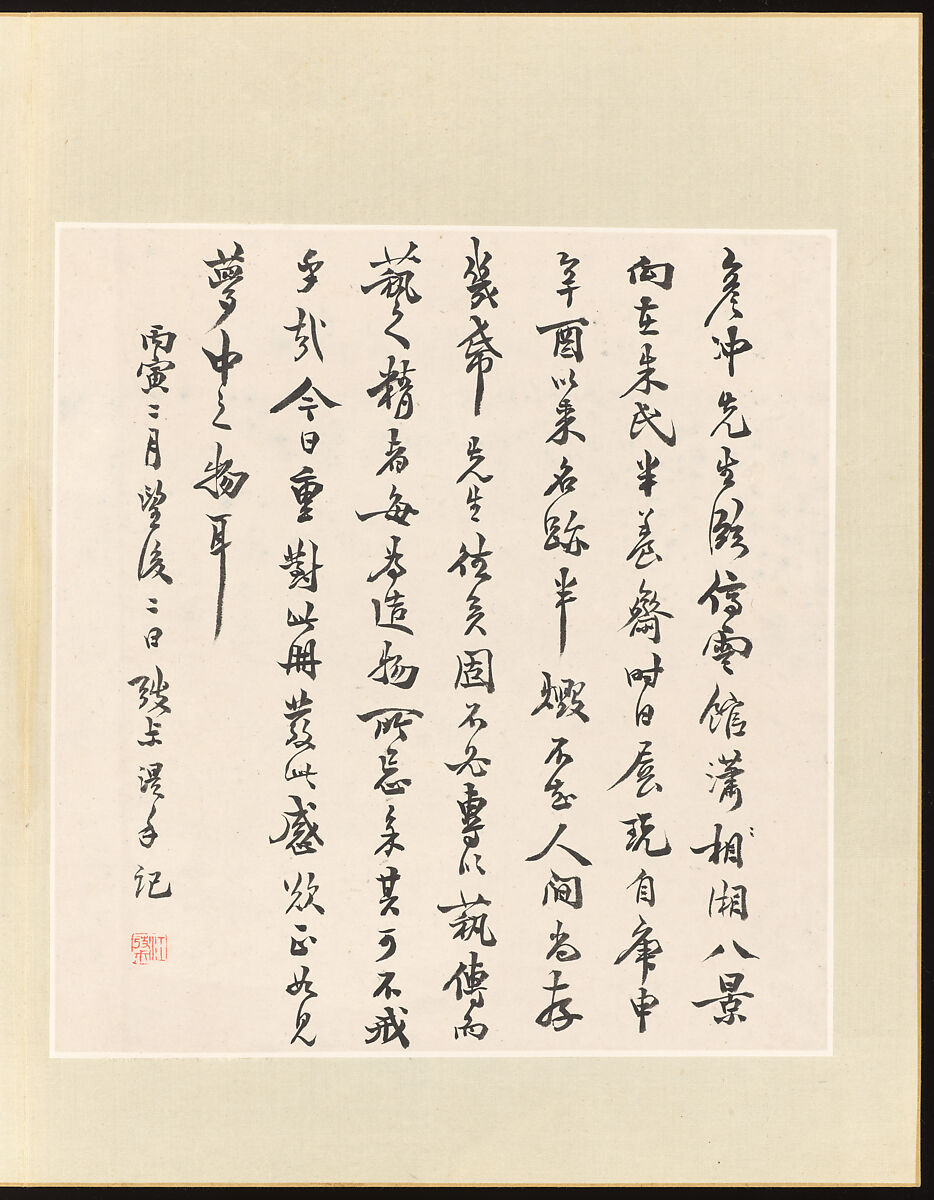 彥冲先生臨停雲館瀟相湘八景
向在朱氏半養齋時日展玩自庚申
辛酉以來名跡半燬不知人間尚存
幾希先生往矣固不必專以藝傳而
藝之精者每為造物所忌矣其可不戒
乎哉今日重對此冊發此感歎正如見
夢中之物耳
丙寅二月望後二日弢叔湜手記
江弢叔